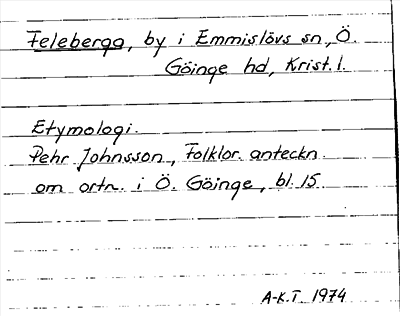 Feleberga, by i Emmislövs sn, Ö.
Göinge hd, Krist. l.
Etymologi.
Pehr Johnsson, Folklor. anteckn.
om ortn. i Ö. Göinge, bl. 15
A-K.T. 1974